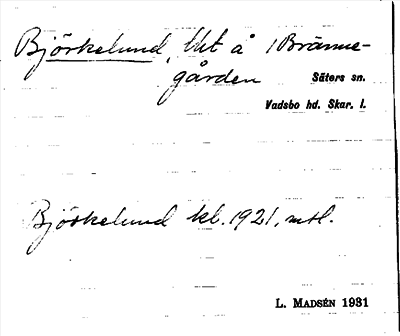 Björkelund, lht å 1 Bränne-
gården Säters sn.
Vadsbo hd. Skar. l.
Björkelund kl. 1921, mtl.
L. MADSÉN 1931